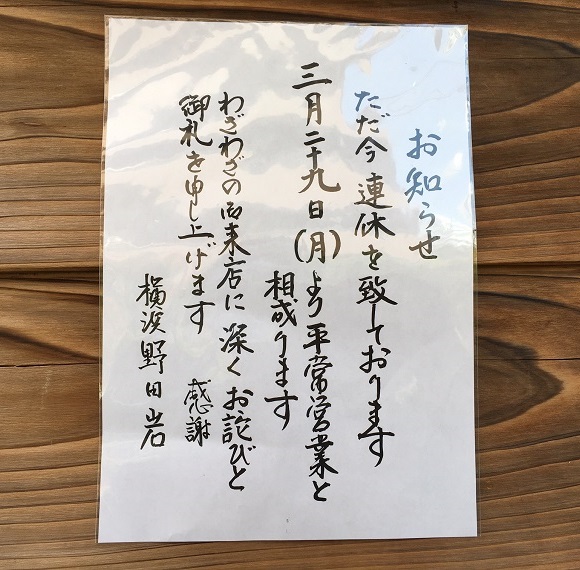 お知らせ
ただ今連休を致しております
三月二十九日(月)より平常営業と
相成ります
わざわざの御来店に深くお詑びと
御礼を申し上げます
感謝
横浜野田岩